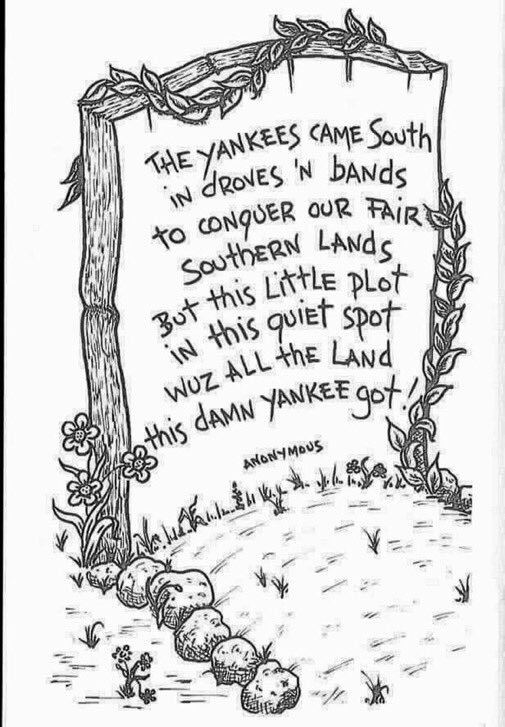 THE YANKEES CAME South
IN dROVES 'N bANds
to CONQUER OUR FAIR
SouthERN LANds
But this LittLE pLot
IN this quiEt spot
WUZ ALL thE LANd
this dAMN YANKEE got!
ANONYMOUS